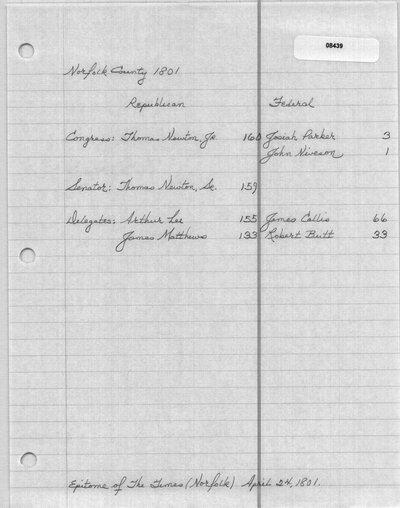 08439
Norfolk County 1801
Republican Federal
Congress: Thomas Newton, Jr. 160 Josiah Parker 3
John Niveson 1
Senator: Thomas Newton, Sr. 159
Delegates: Arthur Lee 155 James Collis 66
James Matthews 133 Robert Butt 33
Epitome of The Times (Norfolk) April 24, 1801.